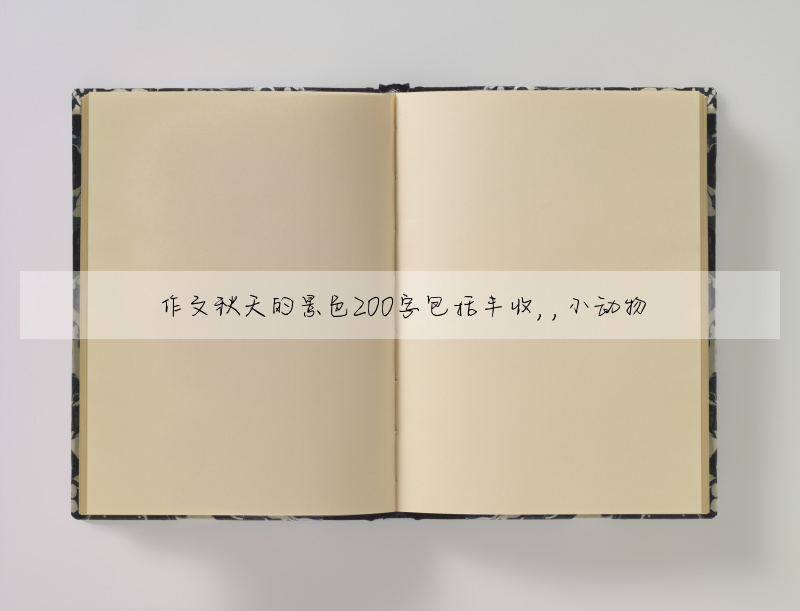 作文秋天的景色200字包括丰收,,小动物